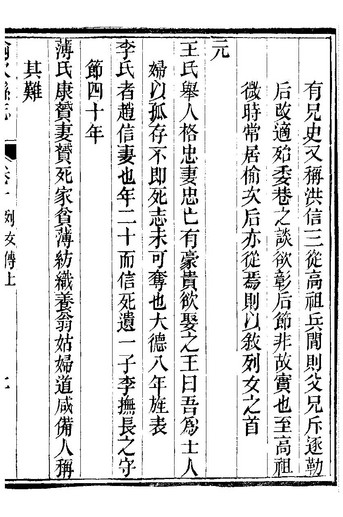 有兄史又稱洪信三從高祖兵閒則父兄斥逐勒
后改適殆委巷之談欲彰后節非故實也至高祖
微時常居榆次后亦從焉則以敘列女之首
元
王氏舉人格忠妻忠亡有豪貴欲娶之王曰吾爲士人
婦以孤存不即死志未可奪也大德八年旌表
李氏者趙信妻也年二十而信死遺一子李撫長之守
節四十年
薄氏康贇妻贇死家貧薄紡織養翁姑婦道咸備人稱
其難
榆次縣志
列女傳上